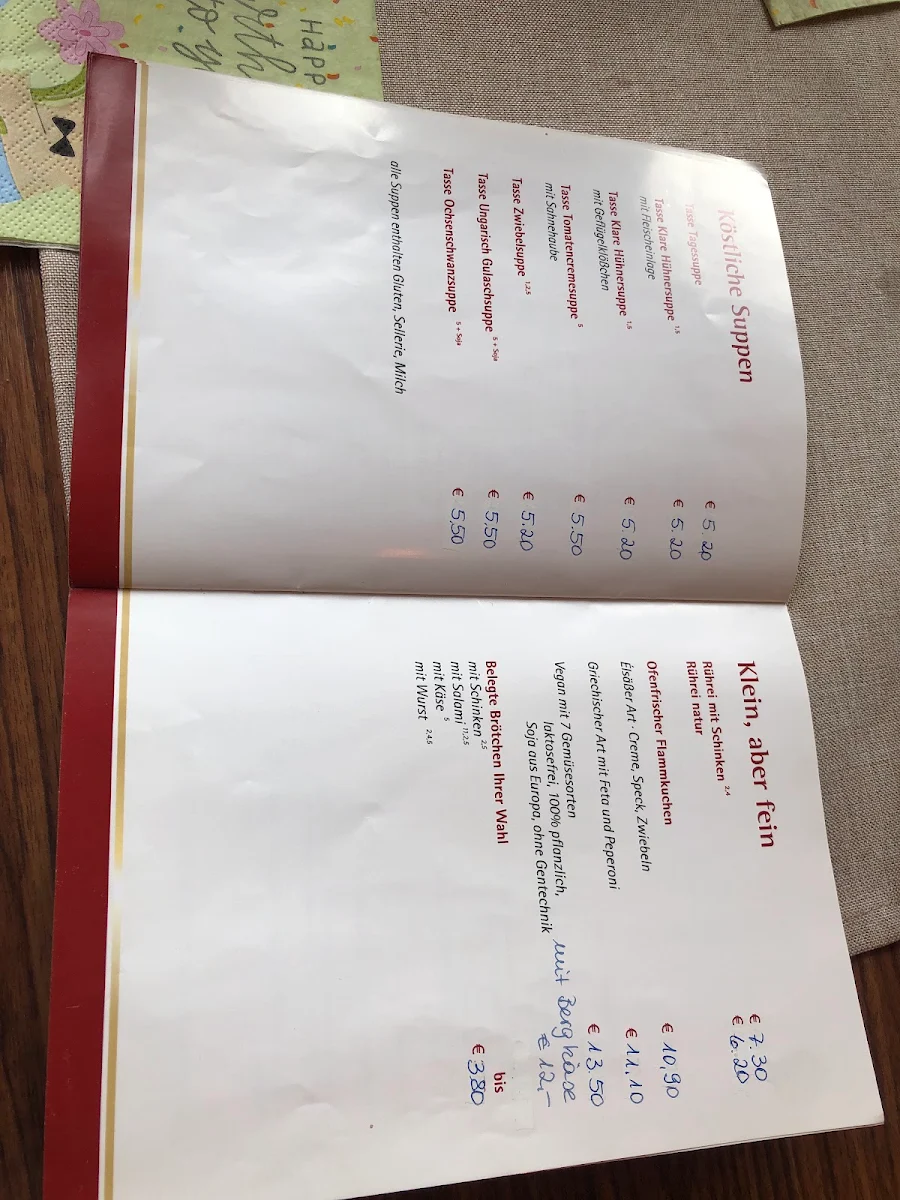 Happ
Köstliche Suppen
Tasse Tagessuppe € 5.20
Tasse Klare Hühnersuppe 1,5 € 5.20
mit Fleischeinlage
Tasse Klare Hühnersuppe 1,5 € 5.20
mit Geflügelklößchen
Tasse Tomatencremesuppe 5 € 5.50
mit Sahnehaube
Tasse Zwiebelsuppe 1,2,5 € 5.20
Tasse Ungarisch Gulaschsuppe 5 + Soja € 5,50
Tasse Ochsenschwanzsuppe 5 + Soja € 5,50
alle Suppen enthalten Gluten, Sellerie, Milch
Klein, aber fein
Rührei mit Schinken 2,4 € 7.30
Rührei natur € 6.20
Ofenfrischer Flammkuchen
Elsäßer Art · Creme, Speck, Zwiebeln € 10,90
Griechischer Art mit Feta und Peperoni € 11,10
Vegan mit 7 Gemüsesorten € 13.50
laktosefrei, 100% pflanzlich, mit Bergkäse
Soja aus Europa, ohne Gentechnik € 12,-
Belegte Brötchen Ihrer Wahl bis
mit Schinken 2,5 € 3.80
mit Salami 11,2,5
mit Käse 5
mit Wurst 2,4,5